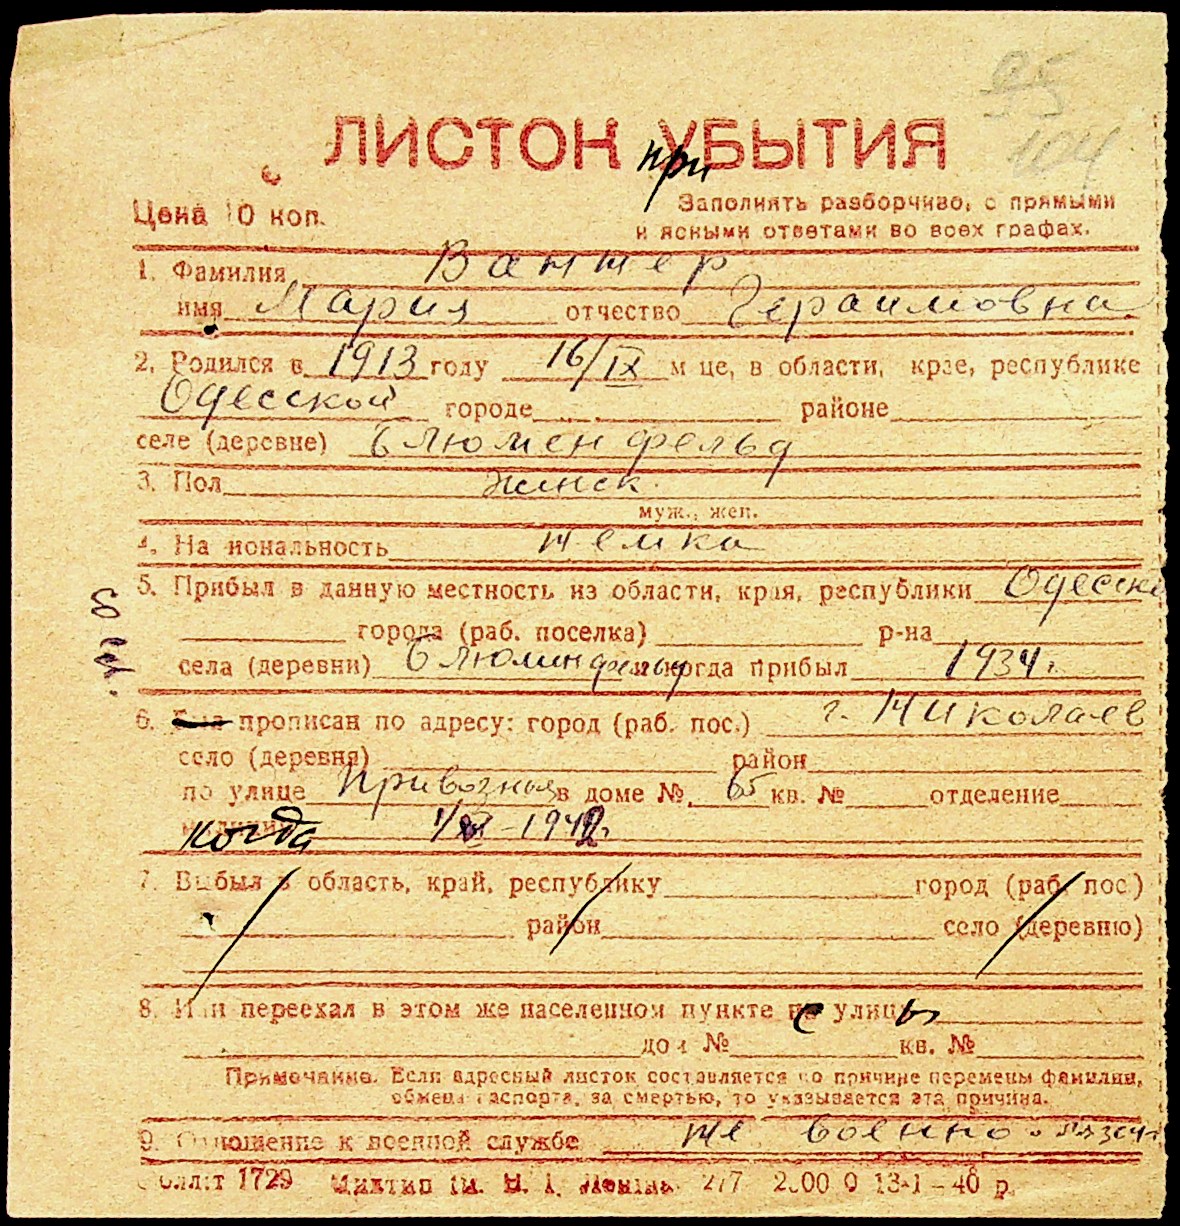 95
104
ЛИСТОК УБЫТИЯ
при
Цена 10 коп.
Заполнять разборчиво, с прямыми
и ясными ответами во всех графах.
1. Фамилия Вантер
имя Мария отчество Герасимовна
2. Родился в 1913 году 16/IX м це, в области, крае, республике
Одесской городе районе
селе (деревне) Блюменфельд
3. Пол женск.
муж., жен.
4. На иональность немка
5. Прибыл в данную местность из области, края, республики Одесской
города (раб. поселка) р-на
села (деревни) Блюминфельд и когда прибыл 1934 г.
6. Был прописан по адресу: город (раб. пос.) г. Николаев
село (деревня) район
по улице Привозная в доме № 65 кв. № отделение
когда 1942 г.
7. Выбыл в область, край, республику город (раб. пос.)
район село (деревню)
8. Или переехал в этом же населенном пункте с улицы
дом № кв. №
Примечание. Если адресный листок составляется по причине перемены фамилии,
обмена паспорта, за смертью, то указывается эта причина.
9. Отношение к военной службе не военно-обязан.
1729 277 13-1-40 р.